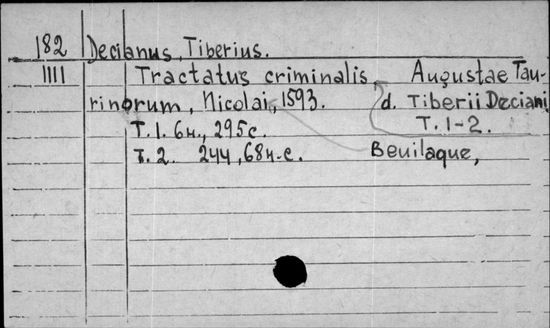 182 Decianus, Tiberius.
1111 Tractatus criminalis Augustae Tau-
rinorum, Nicolai, 1593. d. Tiberii Deciani
T. 1. 6н., 295 с. T. 1-2.
T. 2. 244, 68 н.с. Beuilaque,